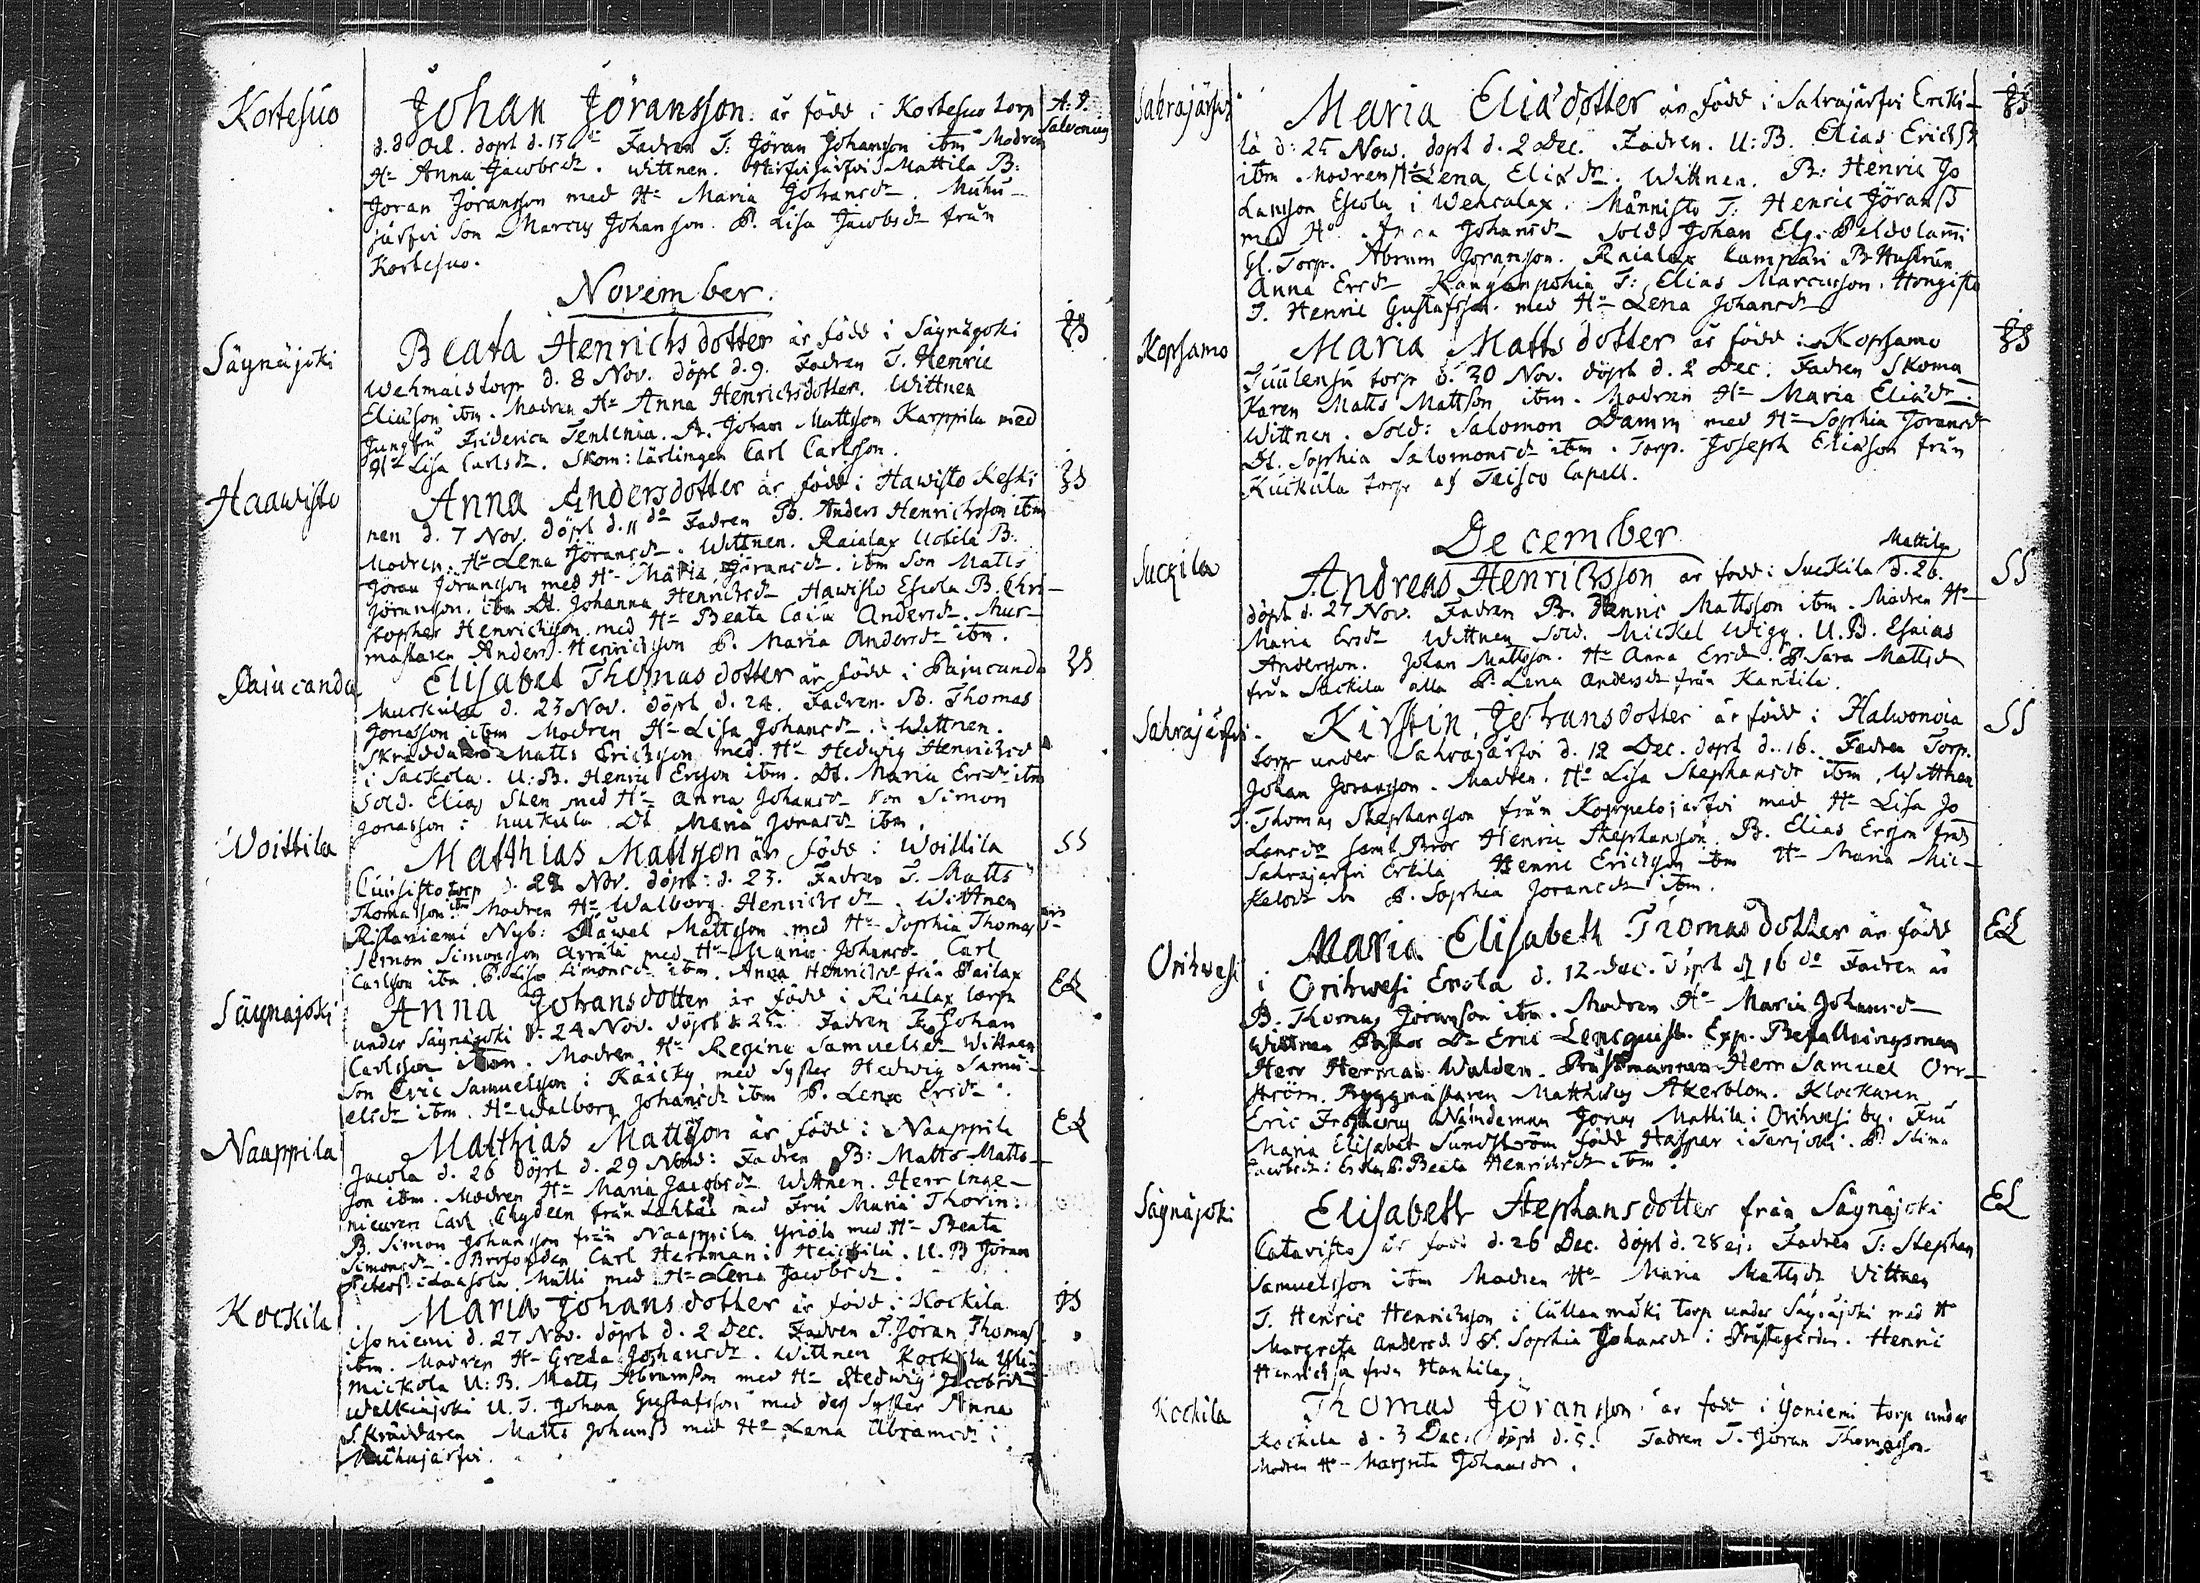 Kortesuo
Johan Jöransson. är född i Kortesuo torp
d. 8 Oct. döpt d. 15 de Fadren T: Jöran Johanson ibm Modren
Hu Anna Jacobsdr. Wittnen. Hirfvijärfvi Mattila B:
Jöran Jöransson med Hu Maria Johansdr. Muhu-
järfvi Son Marcus Johansson. P. Lisa Jacobsdr från
Kortesuo.
A: S.
Salvenius
November.
Säynäjoki
Beata Henrichsdotter är född i Säynäjoki
Wehmais torp d. 8 Nov. döpt d. 9. Fadren T. Henric
Eliasson ibm. Modren Hu Anna Henrichsdotter. Wittnen
Jungfru Friderica Tenlenia. A. Johan Mattsson Karppila med
Hu Lisa Carlsdr. Skom: lärlingen Carl Carlsson.
Haawisto
Anna Andersdotter är född i Hawisto Keski
nen d. 7 Nov. döpt d. 11 do Fadren B. Anders Henrichsson ibm
Modren. Hu Lena Jöransdr. Wittnen. Raialax Uotila B.
Jöran Jöransson med Hu Maria Jöransdr. ibm Son Matts
Jöransson. ibm Dt. Johanna Henrichsdr Hawisto Escola B. Chri-
stopher Henrichsson med Hu Beata Caisa Andersdr. Mur-
mästaren Anders Henrichsson P. Maria Andersdr ibm.
Pajucanda
Elisabet Thomasdotter är född i Pajucanda
Muckula d. 23 Nov. döpt d. 24. Fadren B. Thomas
Jonasson ibm Modren Hu Lisa Johansdr. Wittnen.
Skräddaren Matts Erichsson med Hu Hedwig Henrichsd
i Sackola. U: B. Henric Ersson ibm. Dt. Maria Ersdr ibm
Sold. Elias Sten med Hu Anna Johansdr Son Simon
Jonasson i Muckula Dt Maria Jonasdr ibm.
Woittila
Matthias Mattsson är född i Woittila
Cuusisto torp d. 22 Nov. döpt d. 23. Fadren T. Matts
Thomasson ibm Modren Hu Walborg Henrichsdr. Wittnen
Ristaniemi Nyb: Påwel Mattsson med Hu Sophia Thomas
Simon Simonsson Arrila med Hu Maria Johansdr. Carl
Carlsson ibm P. Lisa Simonsdr ibm. Anna Henrichsd från Pailax
SS
Säynäjoki
Anna Johansdotter är född i Rihilax torp
under Säynäjoki d. 24 Nov. döpt d. 25. Fadren T. Johan
Carlsson ibm. Modren Hu Regina Samuelsdr Wittnen
Son Eric Samuelsson i Kääcky med Syster Hedwig Samu-
elsdr ibm. Hu Walborg Johansdr ibm P. Lena Ersdr.
EL
Naappila
Matthias Mattsson är född i Naappila
Jacola d. 26 döpt d. 29 Nov: Fadren B: Matts Matts-
son ibm. Modren Hu Maria Jacobsdr Wittnen. Herr Inge-
nieuren Carl Chydeen från Lahtis med Fru Maria Thorin:
B. Simon Johansson från Naappila Yriölä med Hu Beata
Simonsdr. Brofogden Carl Herman i Heickilä. U. B Jöran
Petersson Laasola Mulli med Hu Lena Jacobsdr.
EL
Kockila
Maria Johansdotter är född i Kockila
Isoniemi d. 27 Nov. döpt d. 2 Dec. Fadren T. Jöran Thomass
ibm. Modren Hu Greta Johansdr. Wittnen Kockila Yli
Mickola U: B. Matts Abramsson med Hu Hedwig Jacobsdr
Walkiajoki U. T. Johan Gustafsson med des Syster Anna
Skräddaren Matts Johanss med Hu Lena Abramsdr i
Muhujärfvi.
Sahrajärfvi
Maria Elia'dotter är född i Sahrajärfvi Ercki-
lä d: 25 Now. döpt d. 2 Dec. Fadren. U: B. Elias Erichss
ibm Modren Hu Lena Eliadr. Wittnen. B: Henric Jo
hansson Escola i Wehcalax. Männistö T: Henric Jöranss
med Hu Anna Johansdr Sold. Johan Elg. Peldolammi
Gl. Torp. Abram Jöransson. Raialax Kamppari B Hustrun
Anna Ersdr Kanganpohia T: Elias Marcusson. Hongisto
T. Henric Gustafsson. med Hu Lena Johansdr
Kopsamo
Maria Mattsdotter är född i Kopsamo
Tuulensu torp d. 30 Nov. döpt d. 2 Dec. Fadren Skoma-
karen Matts Mattson ibm. Modren Hu Maria Eliadr.
Wittnen. Sold: Salomon Damm med Hu Sophia Joransd
Dt. Sophia Salomonsdr ibm. Torp. Joseph Eliasson från
Kuckula torp af Teisco Capell.
December
Suckila
Mattila
Andreas Henrichsson är född i Suckila d. 26.
döpt d. 27 Nov. Fadren B. Henric Mattsson ibm. Modren Hu
Maria Ersdr Wittnen Sold. Mickel Wigg. U. B. Esaias
Andersson. Johan Mattsson. Hu Anna Ersdr. P. Sara Mattsdr
från Suckila alla P. Lena Andersdr från Kantila.
SS
Sahrajärfvi.
Kirstin Johansdotter är född i Halwonoia
torp under Sahrajärfvi d. 12 Dec. döpt d. 16. Fadren Torp.
Johan Joransson. Modren. Hu Lisa Stephansdr ibm. Wittnen
T. Thomas Stephansson från Koppalojärfvi med Hu Lisa Jo
hansdr samt Bror Henric Stephansson. B. Elias Ersson från
Sahrajärfvi Erkilä Henric Erichsson ibm Hu Maria Mic-
kelsdr ibm P. Sophia Joransdr ibm.
SS
Orihwesi
Maria Elisabeth Thomasdotter är född
i Orihwesi Erola d. 12 Dec. döpt d 16 do Fadren är
B. Thomas Jöransson ibm. Modren Hu Maria Johansdr
Wittnen Pastor Dr Eric Lencquist. Exp. Befallningsman
Herr Herman Walden. Prästmannen Herr Samuel Orr-
ström. Byggmästaren Matthias Åkerblom. Klockaren
Eric Frosterus Nämdeman Jonas Mattila i Orihwesi by. Fru
Maria Elisabet Sundström född Haspar i Serjoki. P. Stina
Jacobsdr: Erola P. Beata Henrichsdr ibm.
EL
Säynäjoki
Elisabeth Stephansdotter från Säynäjoki
Catavisto är född d. 26 Dec. döpt d. 28 ejs. Fadren T: Stephan
Samuelsson ibm Modren Hu Maria Mattsdr Vittnen
T. Henric Henrichsson i Cullanmäki torp under Säynäjoki med Hu
Margreta Andersd. P. Sophia Johansdr i Prästegården. Henric
Henrichsson från Hanhila.
EL
Kockila
Thomas Jöransson är född i Isoniemi torp under
Kockila d. 3 Dec. döpt d. 5. Fadren T. Jöran Thomasson.
Modren Hu Margreta Johansdr.